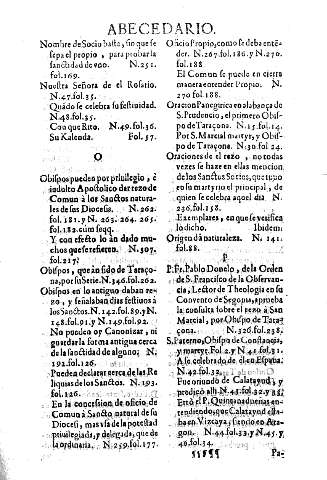 ABECEDARIO.
Nombre de Socio basta, sin que se
sepa el propio, para probar la
sanctidad de uno. N. 251.
fol. 169.
Nuestra Señora de el Rosario.
N. 47. fol. 35.
Quãdo se celebra su festiuidad.
N. 48. fol. 35.
Con que Rito. N. 49. fol. 36.
Su Kalenda. Fol. 57.
O
Obispos pueden por priuilegio, è
indulto Apostolico dar rezo de
Comun à los Sanctos natura-
les de sus Diocesis. N. 262.
fol. 181. y N. 263. 264. 265.
fol. 182. cum seqq.
Y con efecto lo an dado mu-
chos que se refieren. N. 307.
fol. 217.
Obispos, que an sido de Taraço-
na, por su Serie. N. 346. fol. 262.
Obispos en lo antiguo daban re-
zo, y señalaban dias festiuos à
los Sanctos. N. 142. fol. 89. y N.
148. fol. 91. y N. 149. fol. 92.
No pueden oy Canonizar, ni
guardar la forma antigua cerca
de la sanctidad de alguno; N.
192. fol. 126.
Pueden declarar cerca de las Re-
liquias de los Sanctos. N. 193.
fol. 126.
En la concession de oficio de
Comun à Sancto natural de su
Diocesi, mas vsa de la potestad
priuilegiada, y delegada, que de
la ordinaria. N. 259. fol. 177.
Oficio Propio, como se deba entẽ-
der. N. 267. fol. 186. y N. 270.
fol. 188.
El Comun se puede en cierta
manera entender Propio. N.
270. fol. 188.
Oracion Panegirica en alabança de
S. Prudencio, el primero Obispo
de Taraçona. N. 15. fol. 14.
Por S. Marcial martyr, y Obispo
de Taraçona. N. 30. fol. 24.
Oraciones de el rezo, no todas
vezes se haze en ellas mencion
de los Sanctos Socios, que
en su martyrio el principal, de
quien se celebra aquel dia. N.
236. fol. 158.
Exemplares, en que se verifica
lo dicho. Ibidem.
Origen dà naturaleza. N. 141.
fol. 88.
P
P. Fr. Pablo Donelo, de la Orden
de S. Francisco de la Obseruan-
cia, Lector de Theologia en su
Convento de Segouia, aprueba
la consulta sobre el rezo à San
Marcial, por Obispo de Taraço-
na. N. 326. fol. 238.
S. Paterno, Obispo de Constancia,
y martyr. Fol. 2. y N. 41. fol. 31.
A se celebrado de èl en España.
N. 42. fol. 32.
Fue oriundo de Calatayud, y
predicò allì. N. 43. fol. 32. y 33.
Errò el P. Quintanadueñas en-
tendiendo, que Calatayud esta-
ba en Vizcaya, siendo en Ara-
gon. N. 44. fol. 33. y N. 45. y
46. fol. 34.
Pa-